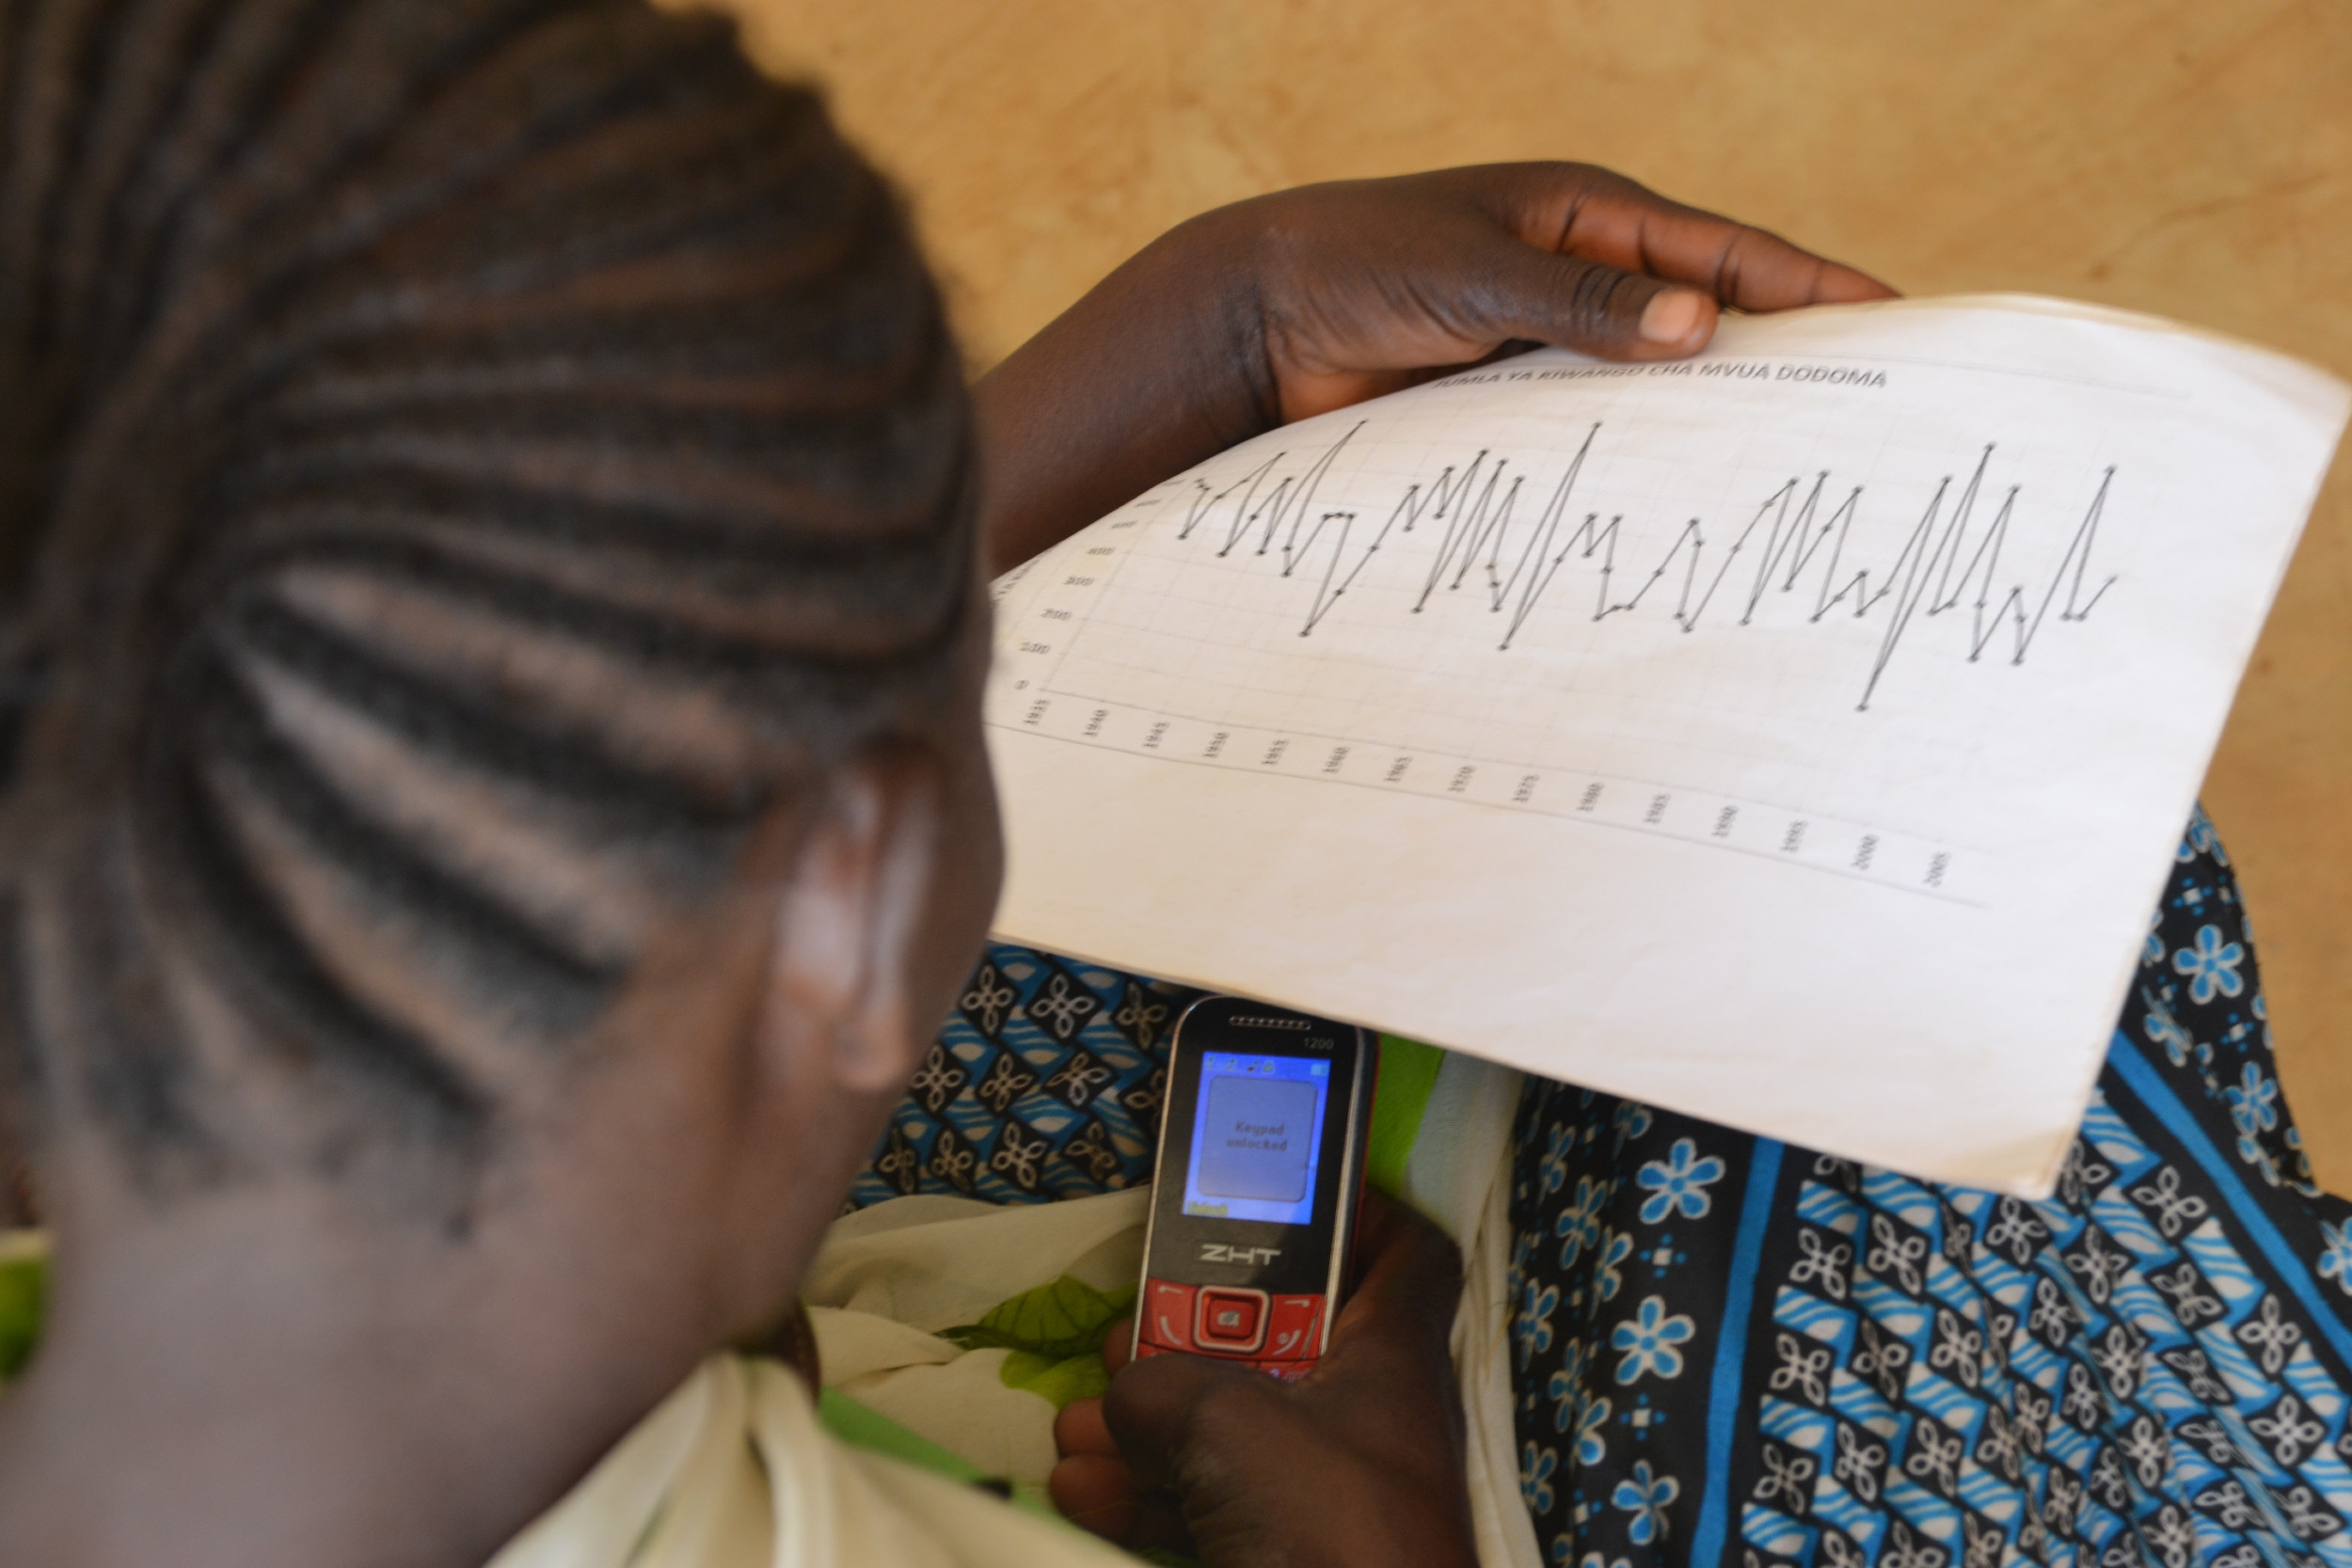 JUMLA YA KIWANGO CHA MVUA DODOMA
400
300
200
100
0
1935 1940 1945 1950 1955 1960 1965 1970 1975 1980 1985 1990 1995 2000 2005
1200
Keypad
unlocked
ZHT